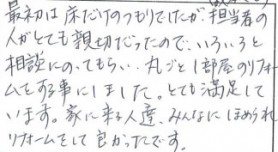 最初は床だけのつもりでしたが、担当者の
人がとても親切だったので、いろいろと
相談にのってもらい、丸ごと1部屋のリフォー
ムをする事にしました。とても満足して
います。家に来る人達、みんなにほめられ
リフォームをして良かったです。